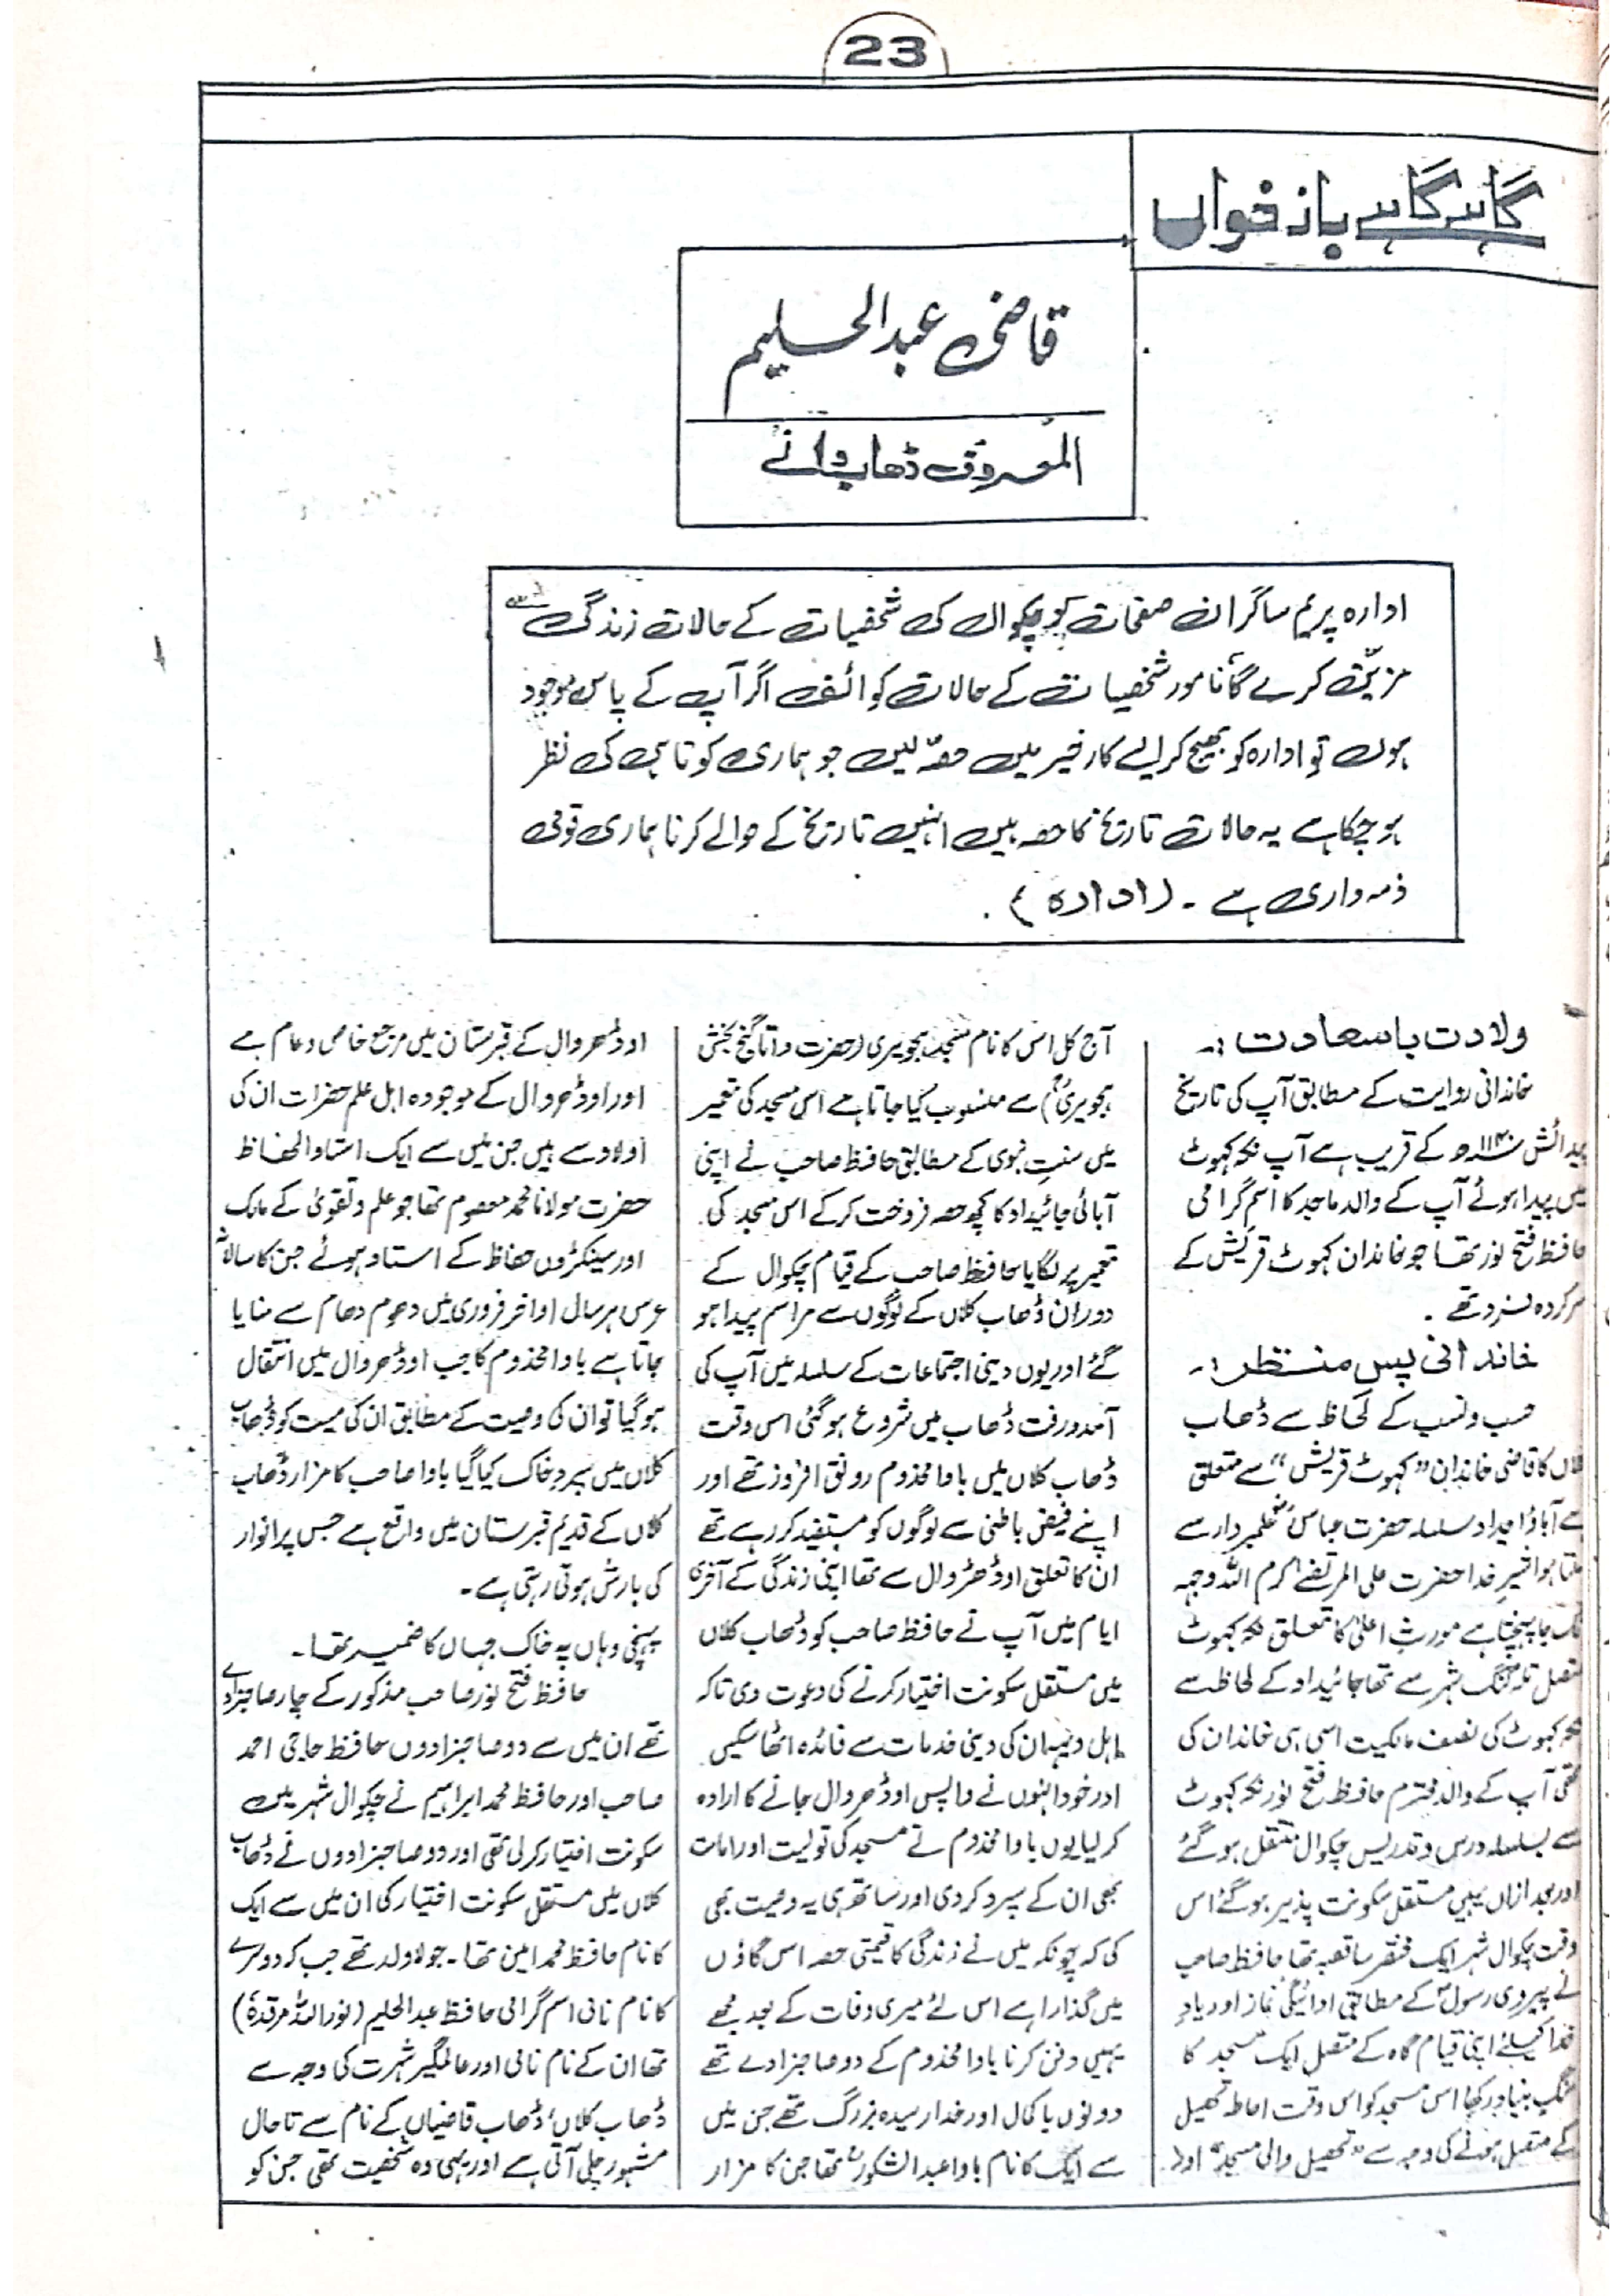 23
گاہے گاہے باز خواں
قاضی عبدالحلیم
المعروف ڈھاب والے
ادارہ پریم ساگر ان صفحات کو چکوال کی شخصیات کے حالات زندگی سے
مزین کرے گا نامور شخصیات کے حالات کوائف اگر آپ کے پاس موجود
ہوں تو ادارہ کو بھیج کر ایسے کار خیر میں حصہ لیں جو ہماری کوتاہی کی نظر
ہو چکا ہے یہ حالات تاریخ کا حصہ ہیں انہیں تاریخ کے حوالے کرنا ہماری قومی
ذمہ داری ہے ۔ (ادارہ) .
ولادت باسعادت :۔
خاندانی روایت کے مطابق آپ کی تاریخ
پیدائش ۱۱۴۰ھ کے قریب ہے آپ نکہ کہوٹ
میں پیدا ہوئے آپ کے والد ماجد کا اسم گرامی
حافظ فتح نور تھا جو خاندان کہوٹ قریش کے
سرکردہ فرد تھے ۔
خاندانی پس منظر :۔
حسب و نسب کے لحاظ سے ڈھاب
کلاں کا قاضی خاندان "کہوٹ قریش" سے متعلق
ہے آباؤ اجداد سلسلہ حضرت عباسؓ علمبردار سے
ملتا ہوا شیر خدا حضرت علی المرتضےٰ کرم اللہ وجہہ
تک جا پہنچتا ہے مورث اعلیٰ کا تعلق نکہ کہوٹ
متصل تلہ گنگ شہر سے تھا جائیداد کے لحاظ سے
نکہ کہوٹ کی نصف مالکیت اسی ہی خاندان کی
تھی آپ کے والد محترم حافظ فتح نور نکہ کہوٹ
سے بسلسلہ درس و تدریس چکوال منتقل ہو گئے
اور بعد ازاں یہیں مستقل سکونت پذیر ہو گئے اس
وقت چکوال شہر ایک مختصر سا قصبہ تھا حافظ صاحب
نے پیروی رسولؐ کے مطابق ادائیگی نماز اور یاد
خدا کیلئے اپنی قیام گاہ کے متصل ایک مسجد کا
سنگ بنیاد رکھا اس مسجد کو اس وقت احاطہ تحصیل
کے متصل ہونے کی وجہ سے "تحصیل والی مسجد" اور
آج کل اس کا نام مسجد ہجویری (حضرت داتا گنج بخش
ہجویریؒ) سے منسوب کیا جاتا ہے اس مسجد کی تعمیر
میں سنت نبوی کے مطابق حافظ صاحب نے اپنی
آبائی جائیداد کا کچھ حصہ فروخت کر کے اس مسجد کی
تعمیر پر لگایا حافظ صاحب کے قیام چکوال کے
دوران ڈھاب کلاں کے لوگوں سے مراسم پیدا ہو
گئے اور یوں دینی اجتماعات کے سلسلہ میں آپ کی
آمد و رفت ڈھاب میں شروع ہو گئی اس وقت
ڈھاب کلاں میں باوا مخدوم رونق افروز تھے اور
اپنے فیض باطنی سے لوگوں کو مستفید کر رہے تھے
ان کا تعلق اوڈھروال سے تھا اپنی زندگی کے آخری
ایام میں آپ نے حافظ صاحب کو ڈھاب کلاں
میں مستقل سکونت اختیار کرنے کی دعوت دی تاکہ
اہل دیہہ ان کی دینی خدمات سے فائدہ اٹھا سکیں
اور خود انہوں نے واپس اوڈھروال جانے کا ارادہ
کر لیا یوں باوا مخدوم نے مسجد کی تولیت اور امامت
بھی ان کے سپرد کر دی اور ساتھ ہی یہ وصیت بھی
کی کہ چونکہ میں نے زندگی کا قیمتی حصہ اس گاؤں
میں گذارا ہے اس لئے میری وفات کے بعد مجھے
یہیں دفن کرنا باوا مخدوم کے دو صاحبزادے تھے
دونوں باکمال اور خدا رسیدہ بزرگ تھے جن میں
سے ایک کا نام باوا عبدالشکورؒ تھا جن کا مزار
اوڈھروال کے قبرستان میں مرجع خاص و عام ہے
اور اوڈھروال کے موجودہ اہل علم حضرات ان کی
اولاد سے ہیں جن میں سے ایک استاد الحفاظ
حضرت مولانا محمد معصوم تھا جو علم و تقویٰ کے مالک
اور سینکڑوں حفاظ کے استاد ہوئے جن کا سالانہ
عرس ہر سال اواخر فروری میں دھوم دھام سے منایا
جاتا ہے باوا مخدوم کا جب اوڈھروال میں انتقال
ہو گیا تو ان کی وصیت کے مطابق ان کی میت کو ڈھاب
کلاں میں سپرد خاک کیا گیا باوا صاحب کا مزار ڈھاب
کلاں کے قدیم قبرستان میں واقع ہے جس پر انوار
کی بارش ہوتی رہتی ہے ۔
پہنچی وہاں پہ خاک جہاں کا خمیر تھا ۔
حافظ فتح نور صاحب مذکور کے چار صاحبزادے
تھے ان میں سے دو صاحبزادوں حافظ حاجی احمد
صاحب اور حافظ محمد ابراہیم نے چکوال شہر میں
سکونت اختیار کر لی تھی اور دو صاحبزادوں نے ڈھاب
کلاں میں مستقل سکونت اختیار کی ان میں سے ایک
کا نام حافظ محمد امین تھا ۔ جو لا ولد تھے جب کہ دوسرے
کا نام نامی اسم گرامی حافظ عبدالحلیم (نور اللہ مرقدہٗ)
تھا ان کے نام نامی اور عالمگیر شہرت کی وجہ سے
ڈھاب کلاں ڈھاب قاضیاں کے نام سے تاحال
مشہور چلی آتی ہے اور یہی وہ شخصیت تھی جن کو